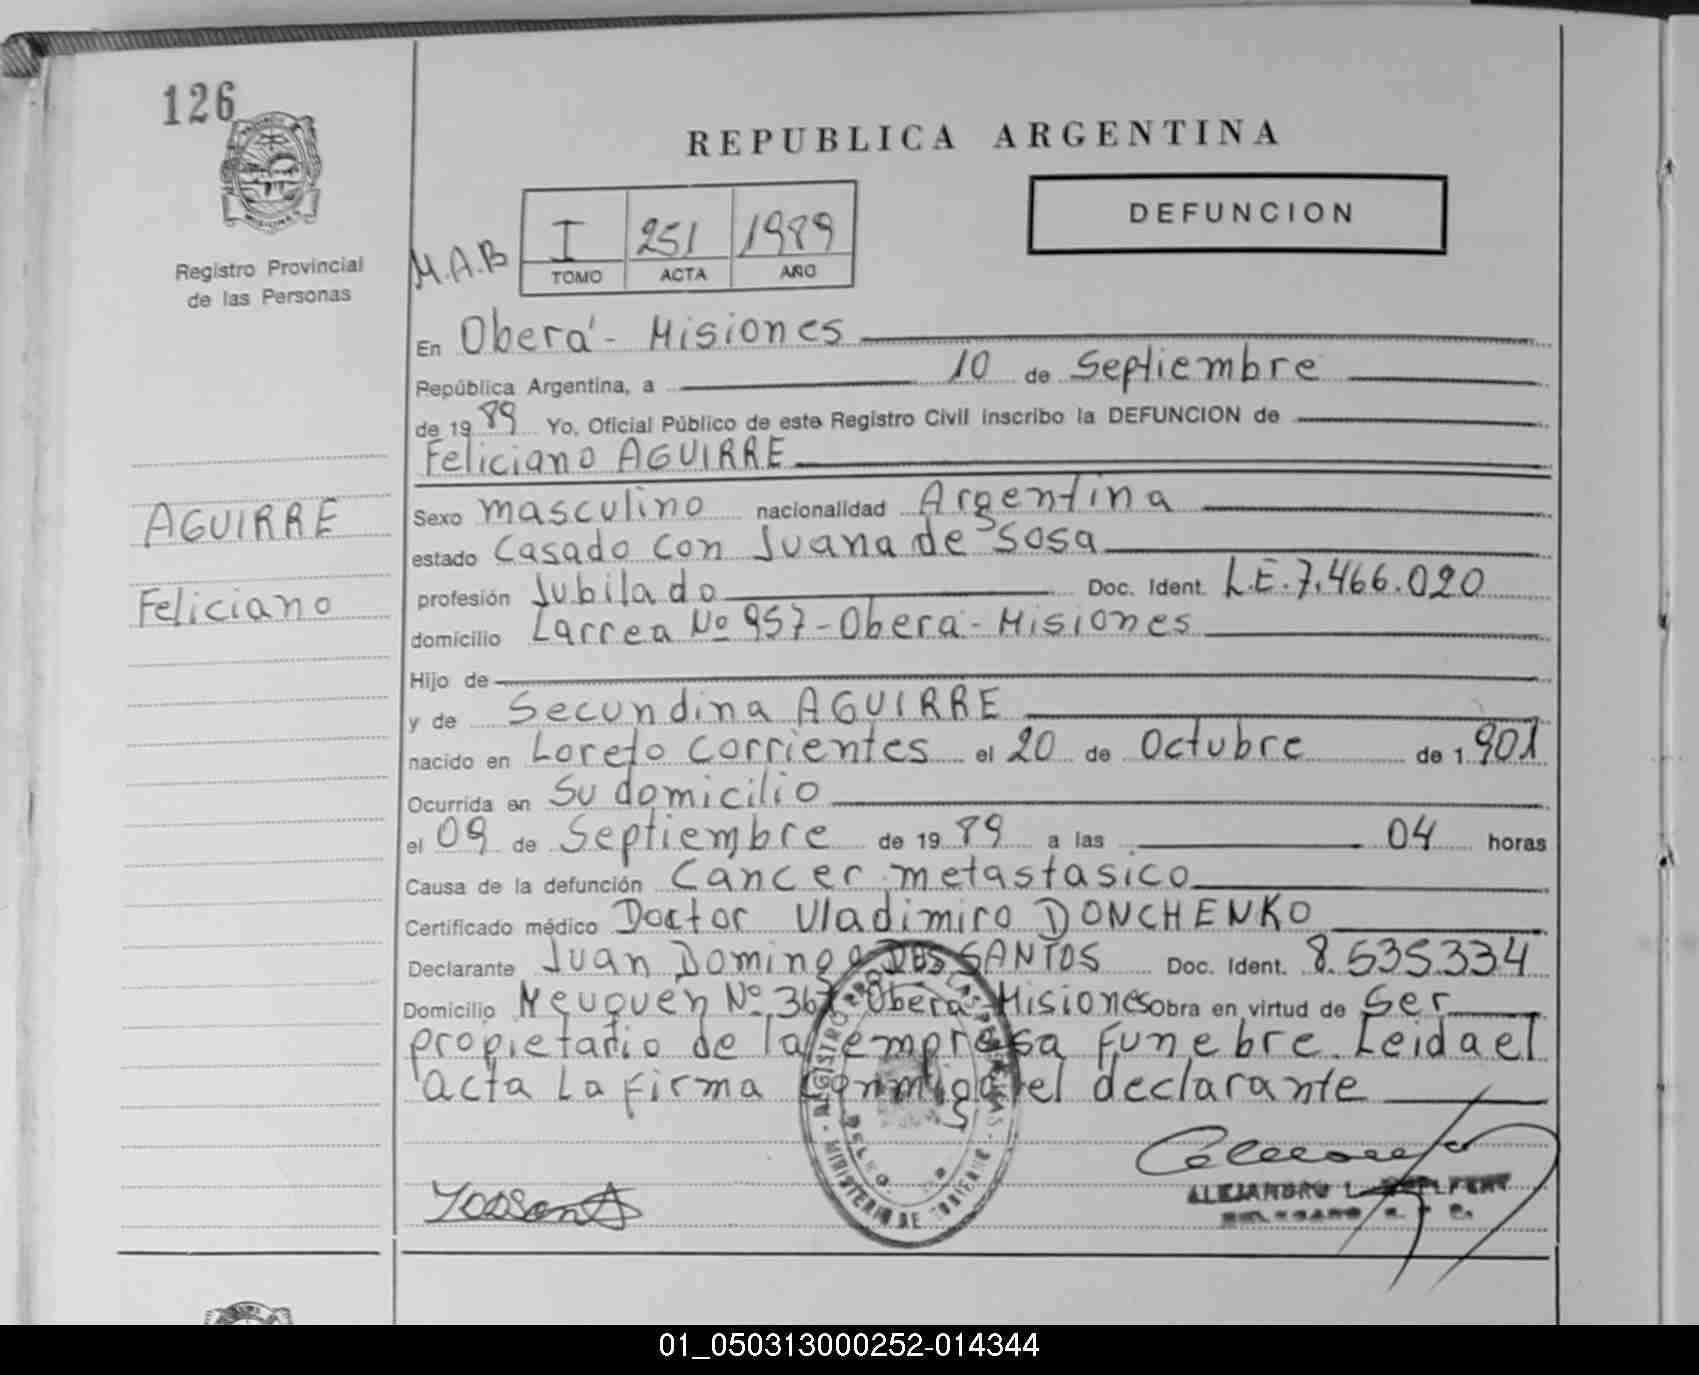 126
REPUBLICA ARGENTINA
DEFUNCION
Registro Provincial
de las Personas
M.A.B
I 251 1989
TOMO ACTA AÑO
En Oberá - Misiones
República Argentina, a 10 de Septiembre
de 1989 Yo, Oficial Público de este Registro Civil inscribo la DEFUNCION de
Feliciano AGUIRRE
AGUIRRE
Feliciano
Sexo masculino nacionalidad Argentina
estado Casado con Juana de Sosa
profesión Jubilado Doc. Ident. L.E. 7.466.020
domicilio Larrea Nº 957 - Oberá - Misiones
Hijo de
y de Secundina AGUIRRE
nacido en Loreto Corrientes el 20 de Octubre de 1.901
Ocurrida en Su domicilio
el 09 de Septiembre de 1989 a las 04 horas
Causa de la defunción Cancer metastasico
Certificado médico Doctor Vladimiro DONCHENKO
Declarante Juan Domingo DOS SANTOS Doc. Ident. 8.535.334
Domicilio Neuquén Nº 367 Oberá Misiones obra en virtud de Ser
propietario de la empresa Funebre. Leida el
acta La firma conmigo el declarante
MINISTERIO DE GOBIERNO
ALEJANDRO L.
01_050313000252-014344